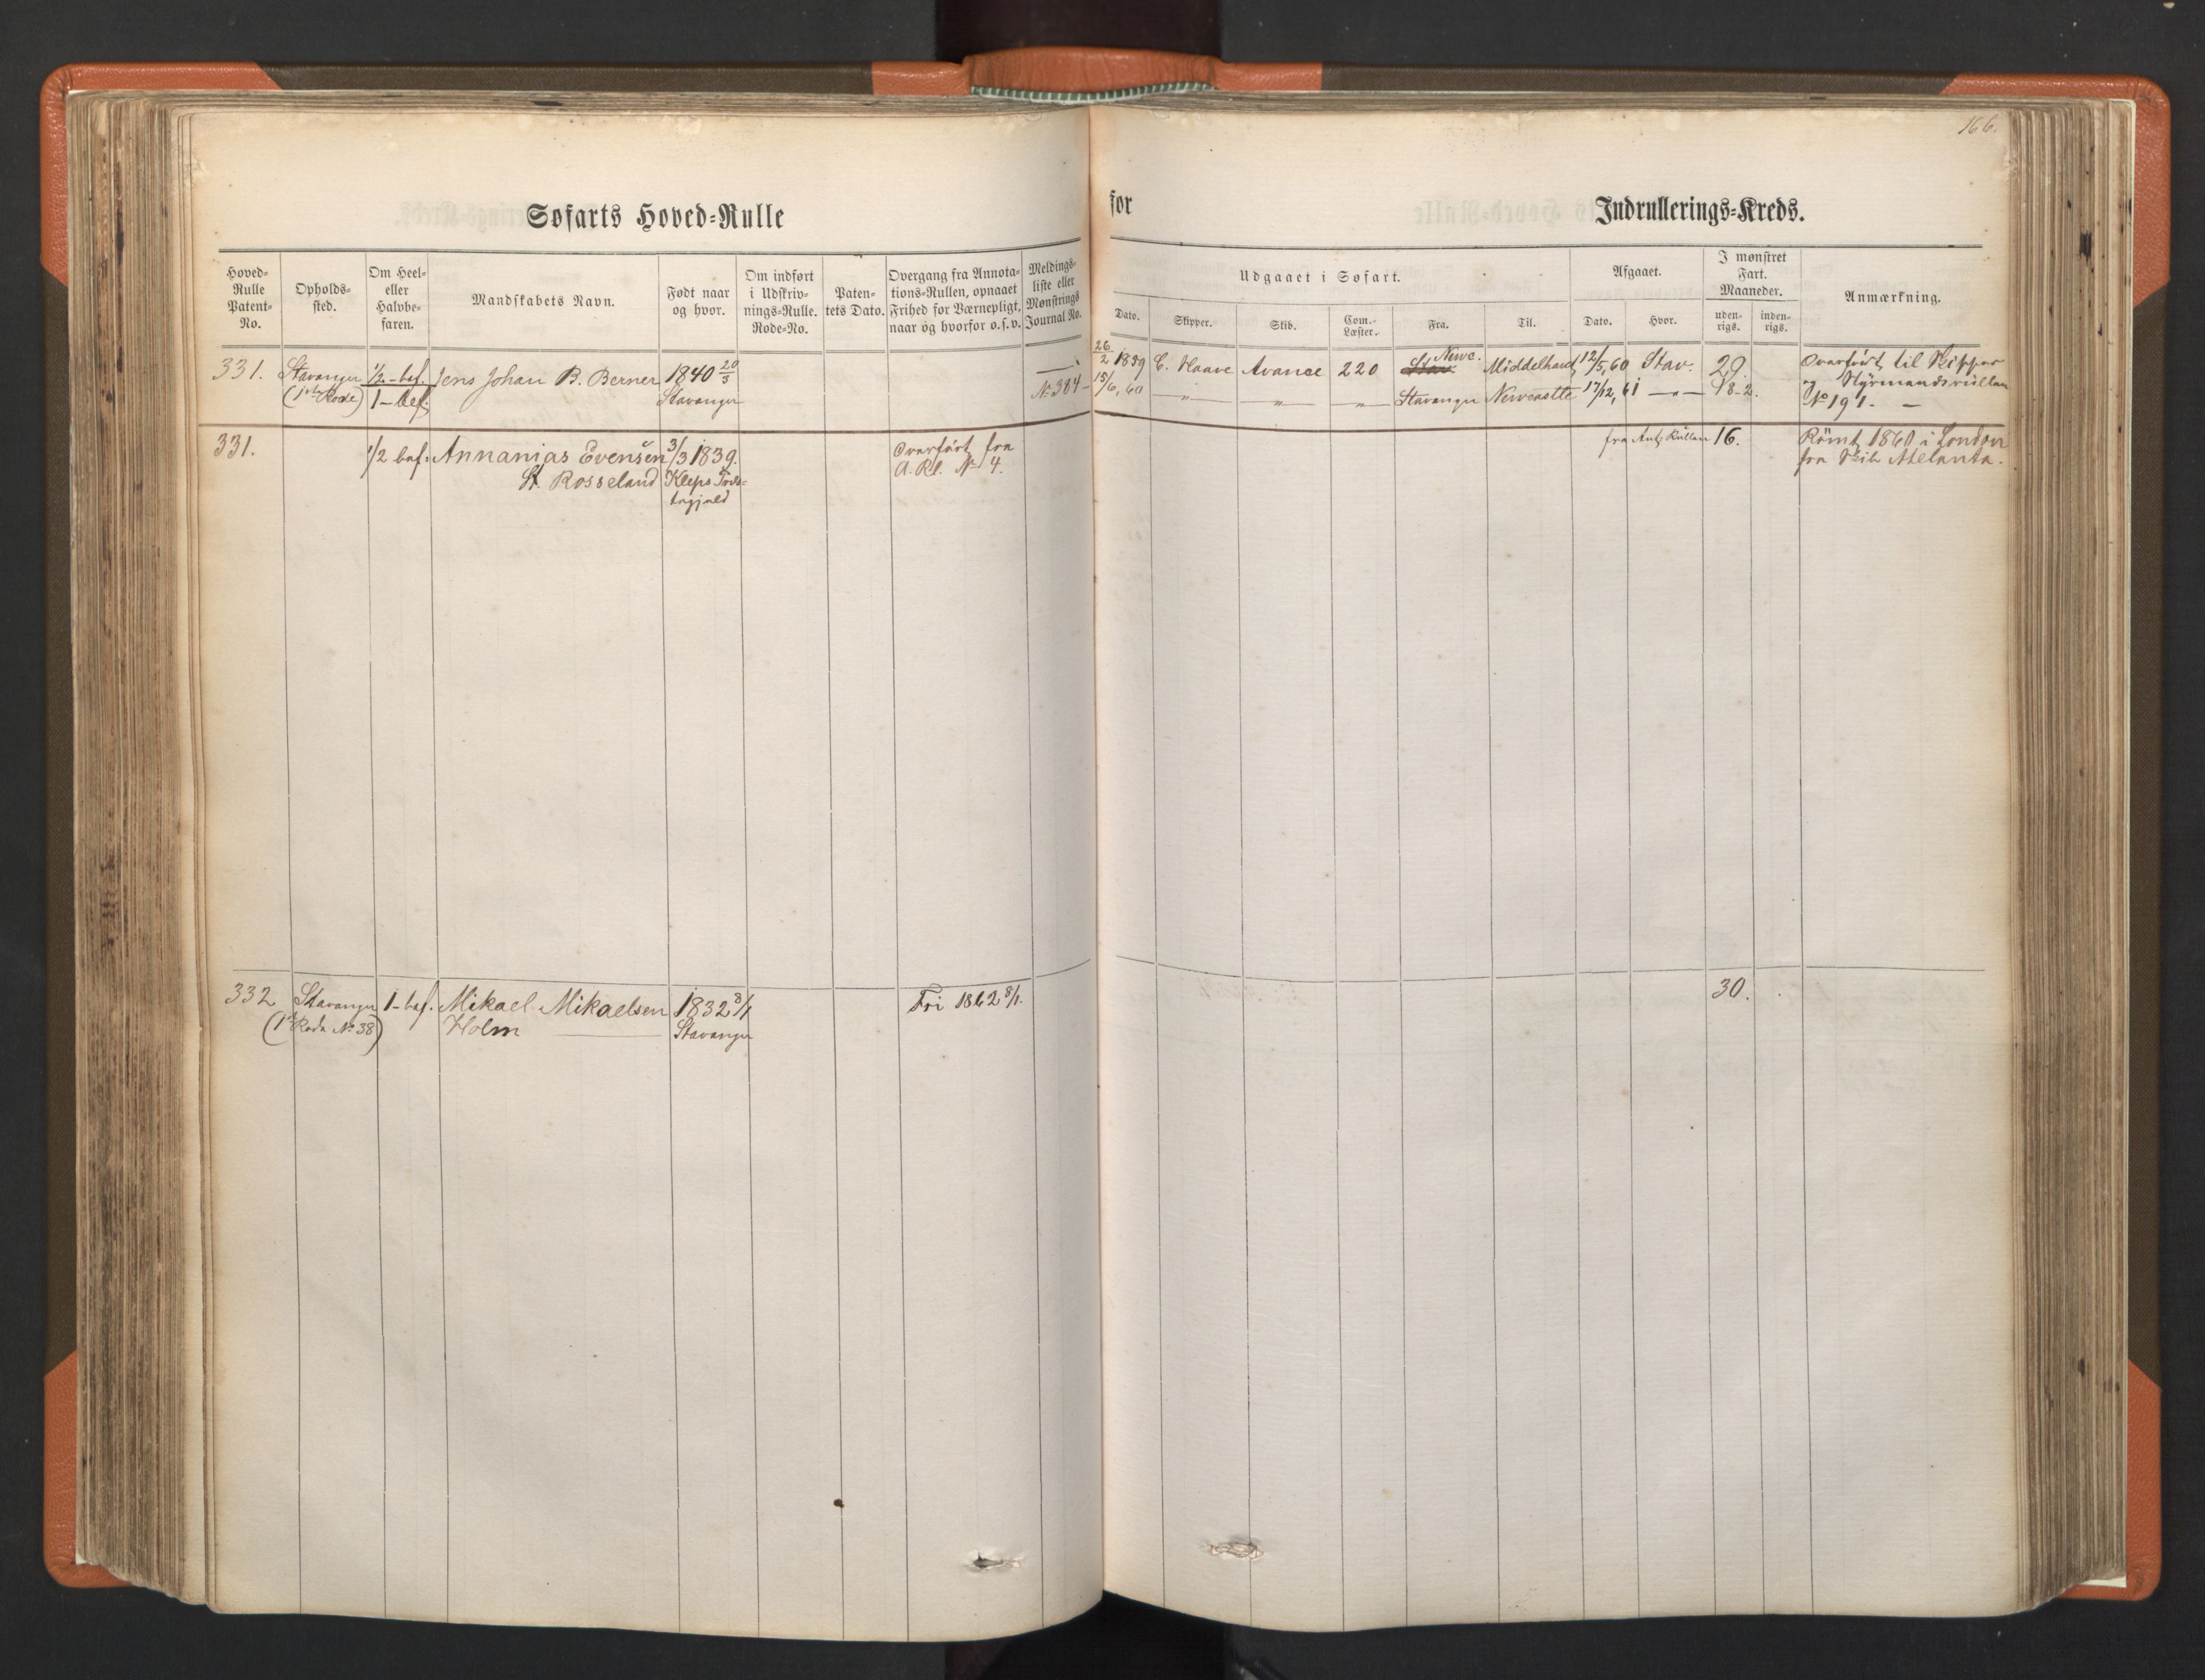 166.
Søfarts Hoved=Rulle
for Indrullerings=Kreds.
Hoved=Rulle Patent=No.
Opholds=sted.
Om Heel= eller Halvbe=faren.
Mandskabets Navn.
Født naar og hvor.
Om indført i Udskriv=nings=Rulle. Rode=No.
Paten=tets Dato.
Overgang fra Annota=tions=Rullen, opnaaet Frihed for Værnepligt, naar og hvorfor o.s.v.
Meldings=liste eller Mønstrings Journal No.
Udgaaet i Søfart.
Dato.
Skipper.
Skib.
Com.=Læster.
Fra.
Til.
Afgaaet.
Dato.
Hvor.
I mønstret Fart. Maaneder.
uden=rigs.
inden=rigs.
Anmærkning.
331. Stavanger ½-bef. Jens Johan B. Berner 1840 20/3 26/2 1859 C. Haave Avance 220 Stav Newc. Middelhavet 12/5,60 Stav. 29. Overført til Skipper
(1ste Rode) 1-bef. Stavanger No 384- 15/6,60 -"- -"- -"- Stavanger Newcastle 17/12,61 -"- 18-2. og Styrmandsrullen
No 191. -
331. ½ bef: Annanias Evensen 3/3 1839. Overført fra fra Ant: Rullen 16. Römt 1860 i London
St. Rosseland Kleps Præs= A. Rl. No 4. fra Skib Atelanta.
tegjeld
332 Stavanger 1-bef. Mikael Mikaelsen 1832 8/1 Fri 1862 8/1. 30.
(1ste Rode No 38) Holm Stavanger